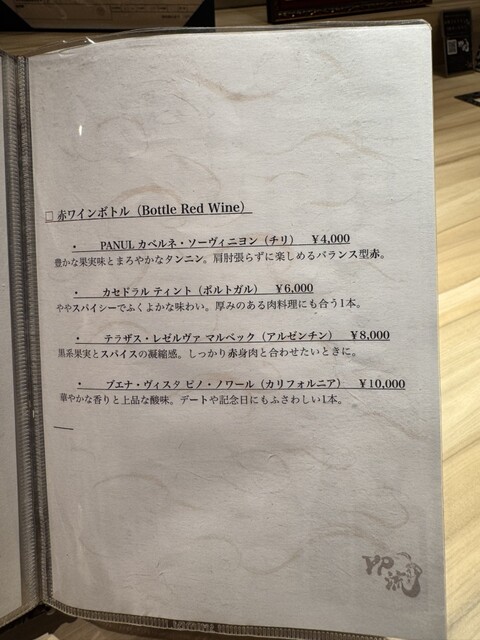 □ 赤ワインボトル（Bottle Red Wine）
・ PANUL カベルネ・ソーヴィニヨン（チリ） ¥4,000
豊かな果実味とまろやかなタンニン。肩肘張らずに楽しめるバランス型赤。
・ カセドラル ティント（ポルトガル） ¥6,000
ややスパイシーでふくよかな味わい。厚みのある肉料理にも合う1本。
・ テラザス・レゼルヴァ マルベック（アルゼンチン） ¥8,000
黒系果実とスパイスの凝縮感。しっかり赤身肉と合わせたいときに。
・ ブエナ・ヴィスタ ピノ・ノワール（カリフォルニア） ¥10,000
華やかな香りと上品な酸味。デートや記念日にもふさわしい1本。